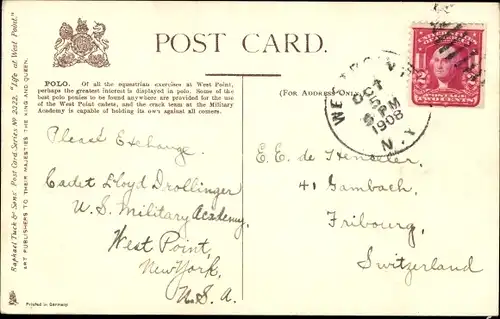 POST CARD.
POLO. Of all the equestrian exercises at West Point,
perhaps the greatest interest is displayed in polo. Some of the
best polo ponies to be found anywhere are provided for the use
of the West Point cadets, and the crack team at the Military
Academy is capable of holding its own against all comers.
(FOR ADDRESS ONLY.)
WEST POINT
OCT
5
5 PM
1908
N.Y.
2 2
POSTAGE
TWO CENTS
Please Exchange.
Cadet Lloyd Drollinger
U.S. Military Academy,
West Point,
New York,
U.S.A.
E.E. de Henseler,
41 Gambach,
Fribourg,
Switzerland
Raphael Tuck & Sons' Post Card Series No 2022. "Life at West Point."
ART PUBLISHERS TO THEIR MAJESTIES THE KING AND QUEEN.
Printed in Germany